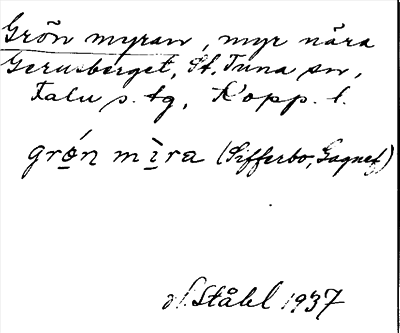 Grön myran, myr nära
Gerusberget, St. Tuna sn,
Falu s. tg, Kopp. l.
grǫ́n mìra (Sifferbo, Gagnef)
H. Ståhl 1937